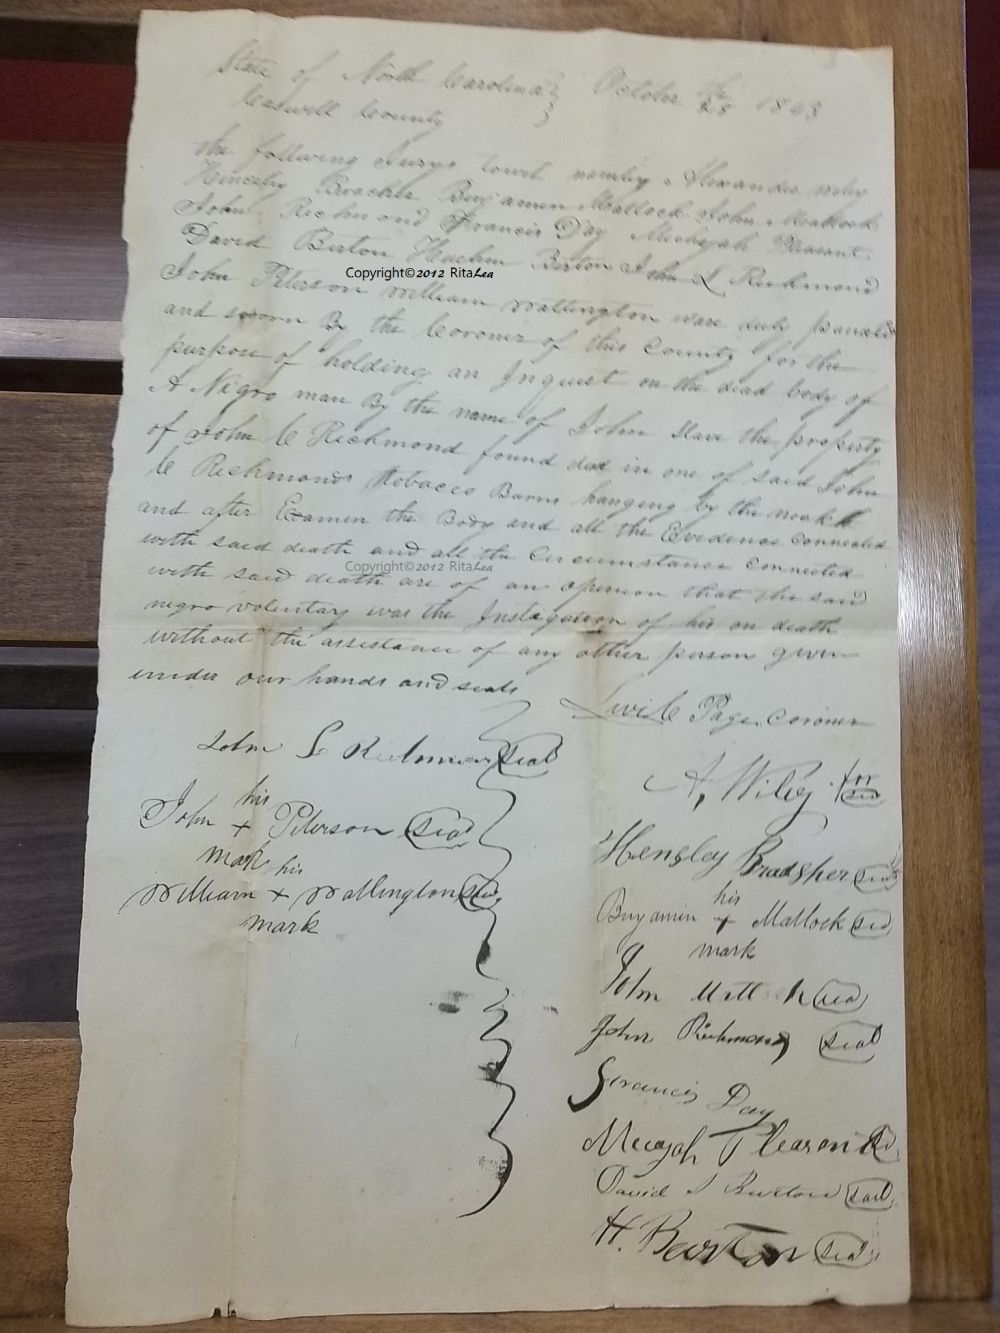 State of North Carolina } October the 28 1843
Caswell County
the following Jurys towit namly Alexander wiley
Hinesley Bracher Benjamin Matlock John Matlock
John Richmond Francis Day Michajah Pleasant
David Burton Huchm Burton John L Richmond
John Peterson William Wallington ware duly panaled
and sworn By the Coroner of this County for the
purpose of holding an Inquest on the dead body of
A Nigro man By the name of John Slave the property
of John C Richmond found ded in one of said John
C Richmonds Tobacco Barns hanging by the neck
and after Examen the Body and all the Evedence Connected
with said death and all the Circumstance Connected
with said death are of an opinion that the said
negro voluntary was the Instagation of his on death
without the assistance of any other person given
under our hands and seals
Levi C Page Coroner
John L Richmond seal
his
John + Peterson seal
mark
his
William + Wallington seal
mark
A, Wiley
Hensley Bradsher seal
his
Benjamin + Matlock seal
mark
John seal
John Richmond seal
Francis Day
Micajah Pleasant
David S Burton seal
H. Burton seal
Copyright©2012 RitaLea
Copyright©2012 RitaLea